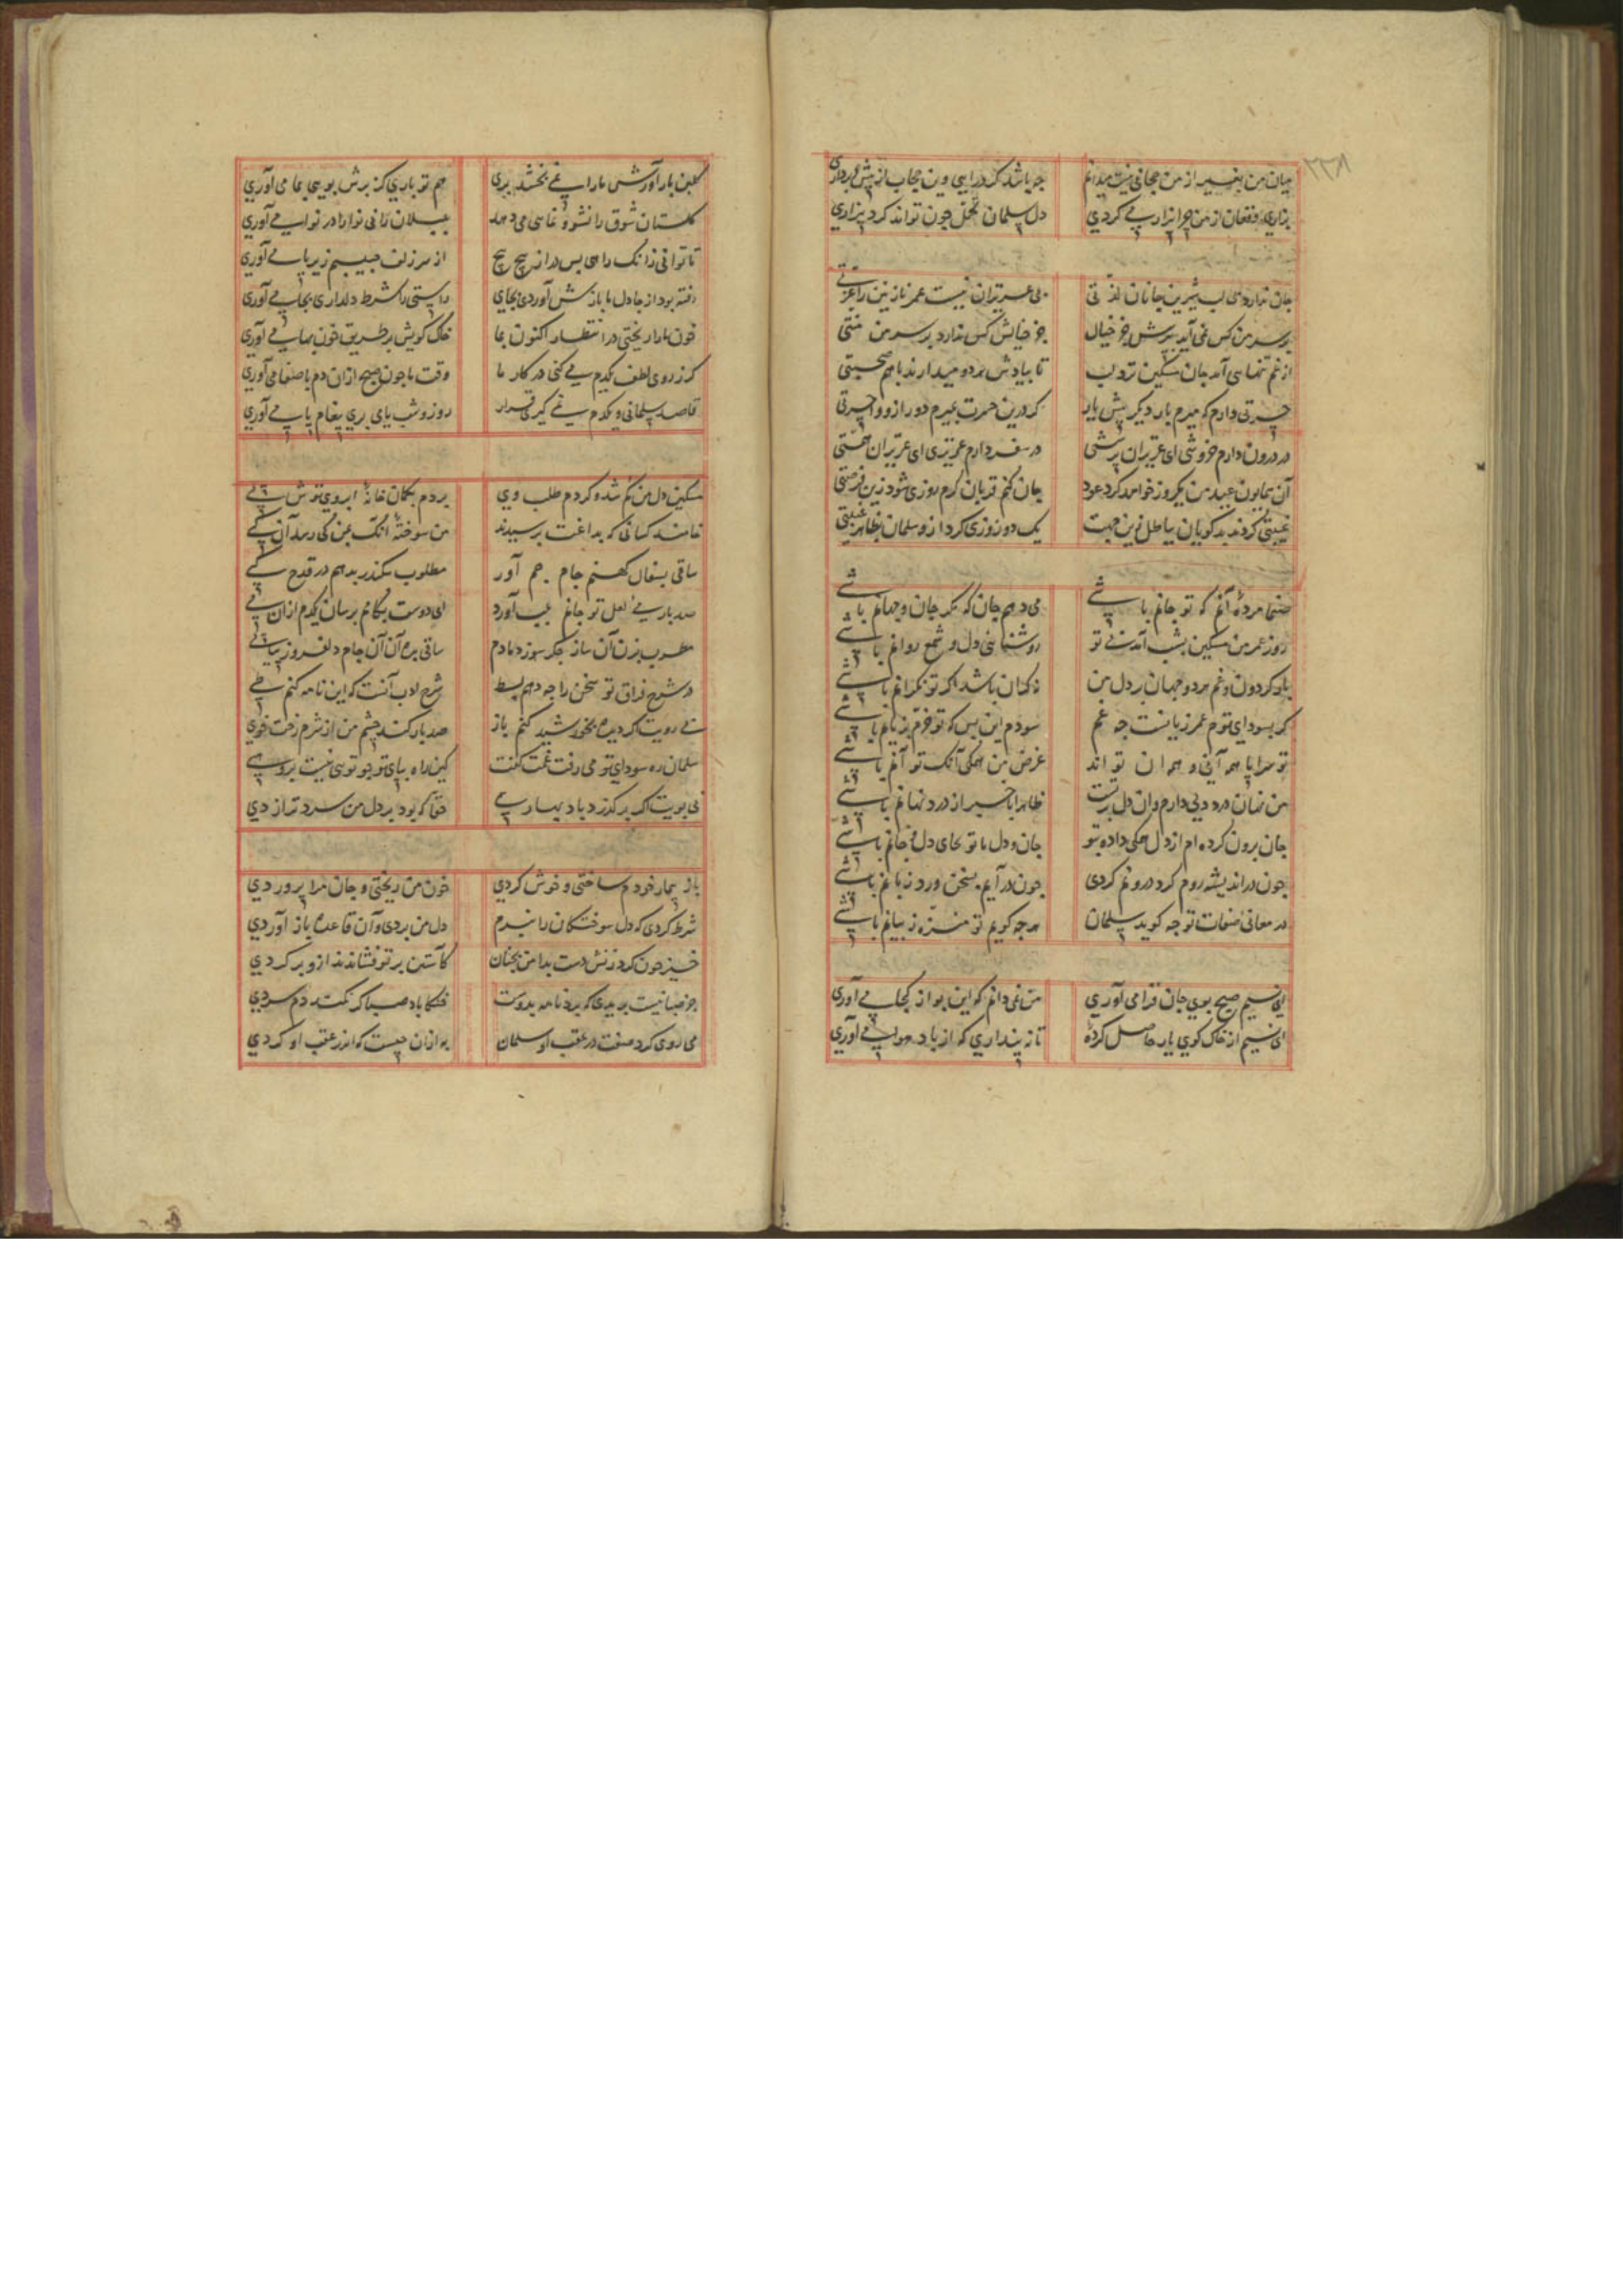 ۲۲۸
میان من بغیر از من حجابی نیست میدانم جه باشد کر درایی وین حجاب از پیش برداری
بزاری و فغان از من جرا بیزار می کردی دل سلمان تحمل جون تواند کرد بیزاری
جان ندارد بی لب شیرین جانان لذتی بی عزیزان نیست عمر نازنین را عزتی
بر سر من کس نمی آید بپرسش جز خیال جز خیالش کس ندارد بر سر من منتی
از غم تنهایی آمد جان مسکین نزد لب تا بیادش هر دو میدارند با هم صحبتی
حسرتی دارم که میرم بار دیکر پیش یار کر درین حسرت بمیرم دور ازو واحسرتی
در درون دارم خروشی ای عزیزان پرسشی در سفر دارم عزیزی ای عزیزان همتی
آن همایون عید من یکروز خواهد کرد عود جان کنم قربان کرم روزی شود زین فرصتی
غیبتی کردند بدکویان بباطل زین جهت یک دو روزی کرد ازو سلمان بظاهر غیبتی
صنما مرده آنم که تو جانم باشی می دهم جان که مکر جان و جهانم باشی
روز عمر من مسکین بشب آمد بی تو روشنایی دل و شمع روانم باشی
بار کردون و غم هر دو جهان بر دل من نه کران باشد اکر تو نکرانم باشی
کر بسودای توم عمر زیانست جه غم سودم این بس که تو خرم بزیانم باشی
تو سراپا همه آنی و همه ان تو اند غرض من همکی آنک تو آنم باشی
من نهان درد دلی دارم وان دل بر تست ظاهرا باخبر از درد نهانم باشی
جان برون کرده ام از دل همکی داده بتو جان و دل با تو بجای دل و جانم باشی
جون در اندیشه روم کرد درونم کردی جون در آیم بسخن ورد زبانم باشی
در معانی صفات تو جه کوید سلمان هرجه کویم تو منزه ز بیانم باشی
ای نسیم صبح بوی جان فزا می آوری من نمی دانم که این بو از کجا می آوری
ای نسیم از خاک کوی یار حاصل کرده تا نه پنداری که از باد هوا می آوری
کلبن بار آورش ما را نمی بخشد بری هم تو باری کز برش بویی بما می آوری
کلستان شوق را نشو و نمایی می دهد بلبلان را بی نوا را در نوا می آوری
تا توانی زانک راهی بس دراز پیچ پیچ از سر زلف حبیبم زیر پا می آوری
رفته بود از جا دل ما بازش آوردی بجای راستی را شرط دلداری بجا می آوری
خون ما را ریختی در انتظار اکنون بما خاک کویش بر طریق خون بها می آوری
کر ز روی لطف یکدم می کنی در کار ما وقت ما جون صبح از ان دم با صفا می آوری
قاصد سلمانی و یکدم نمی کیری قرار روز و شب یا می بری پیغام یا می آوری
مسکین دل من کم شد و کردم طلب وی بردم بکمان خانه ابروی توش پی
خامند کسانی که بداغت نرسیدند من سوخته آنک بمن کی رسد آن کی
ساقی بسفال کهنم جام جم آور مطلوب سکندر بدهم در قدح کی
صد بار می لعل تو جانم بلب آورد ای دوست بکامم برسان یکدم ازان می
مطرب بزن آن ساز جکر سوز دمادم ساقی بده آن آن جام دلفروز پیاپی
در شرح فراق تو سخن را جه دهم بسط شرح ادب آنست که این نامه کنم طی
بی رویت اکر دیده بخورشید کنم باز صد بار کند جشم من از شرم رخت خوی
سلمان ره سودای تو می رفت غمت کفت کین راه بپای جو تویی نیست برو هی
بی بویت اکر بر کذرد باد بهاری حقا که بود بر دل من سردتر از دی
باز بیمار خودم ساختی و خوش کردی خون من ریختی و جان مرا پروردی
شرط کردی که دل سوختکان را نبرم دل من بردی وآن قاعده باز آوردی
خیز جون کرد زنش دست بدامن بجنان کاستین بر تو فشاند نه ازو بر کردی
جز صبا نیست بریدی که برد نامه بدوست خنکا باد صبا کر نکند دم سردی
می روی کرد صفت در عقب او سلمان به ازان جیست که اندر عقب او کردی